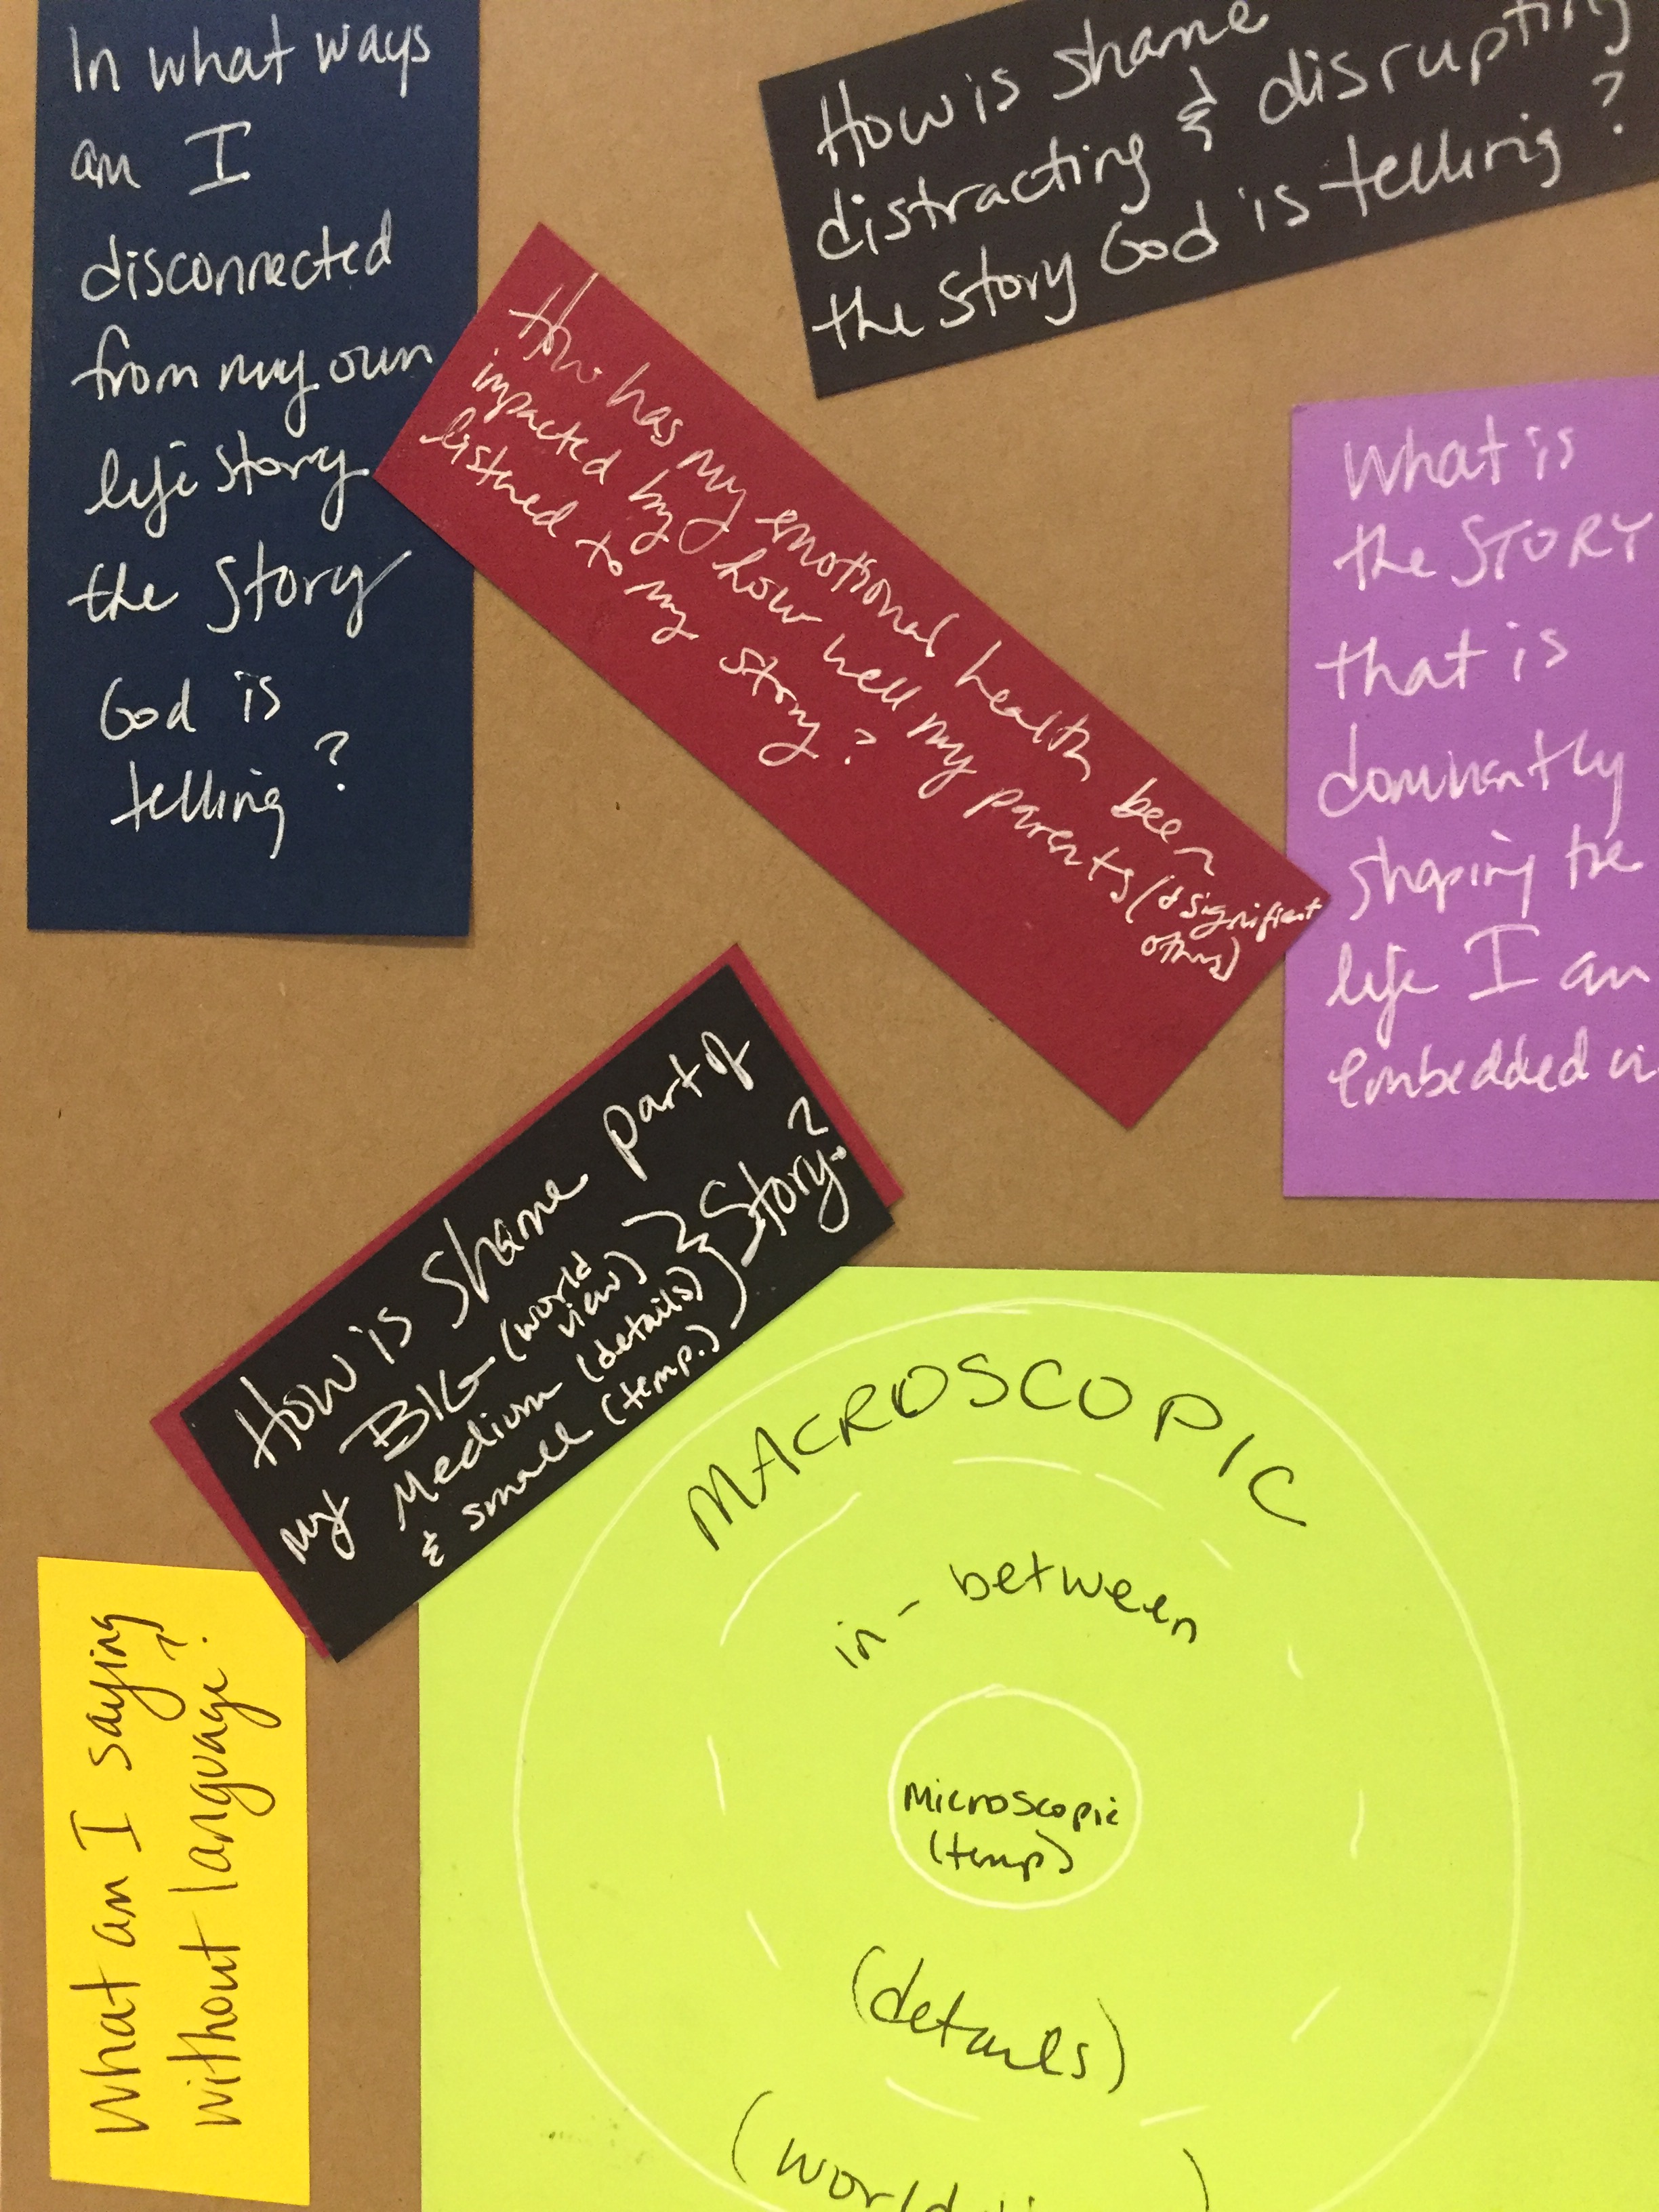 In what ways
am I
disconnected
from my own
life story
the story
God is
telling?
How is shame
distracting & disrupting
the story God is telling?
How has my emotional health been
impacted by how well my parents (& significant
others)
listned to my story?
What is
the STORY
that is
dominantly
shaping the
life I am
embedded in
How is shame part of
my BIG (world
view)
Medium (details)
& small (temp.)
Story?
What am I saying
without language?
MACROSCOPIC
in-between
Microscopic
(temp)
(details)